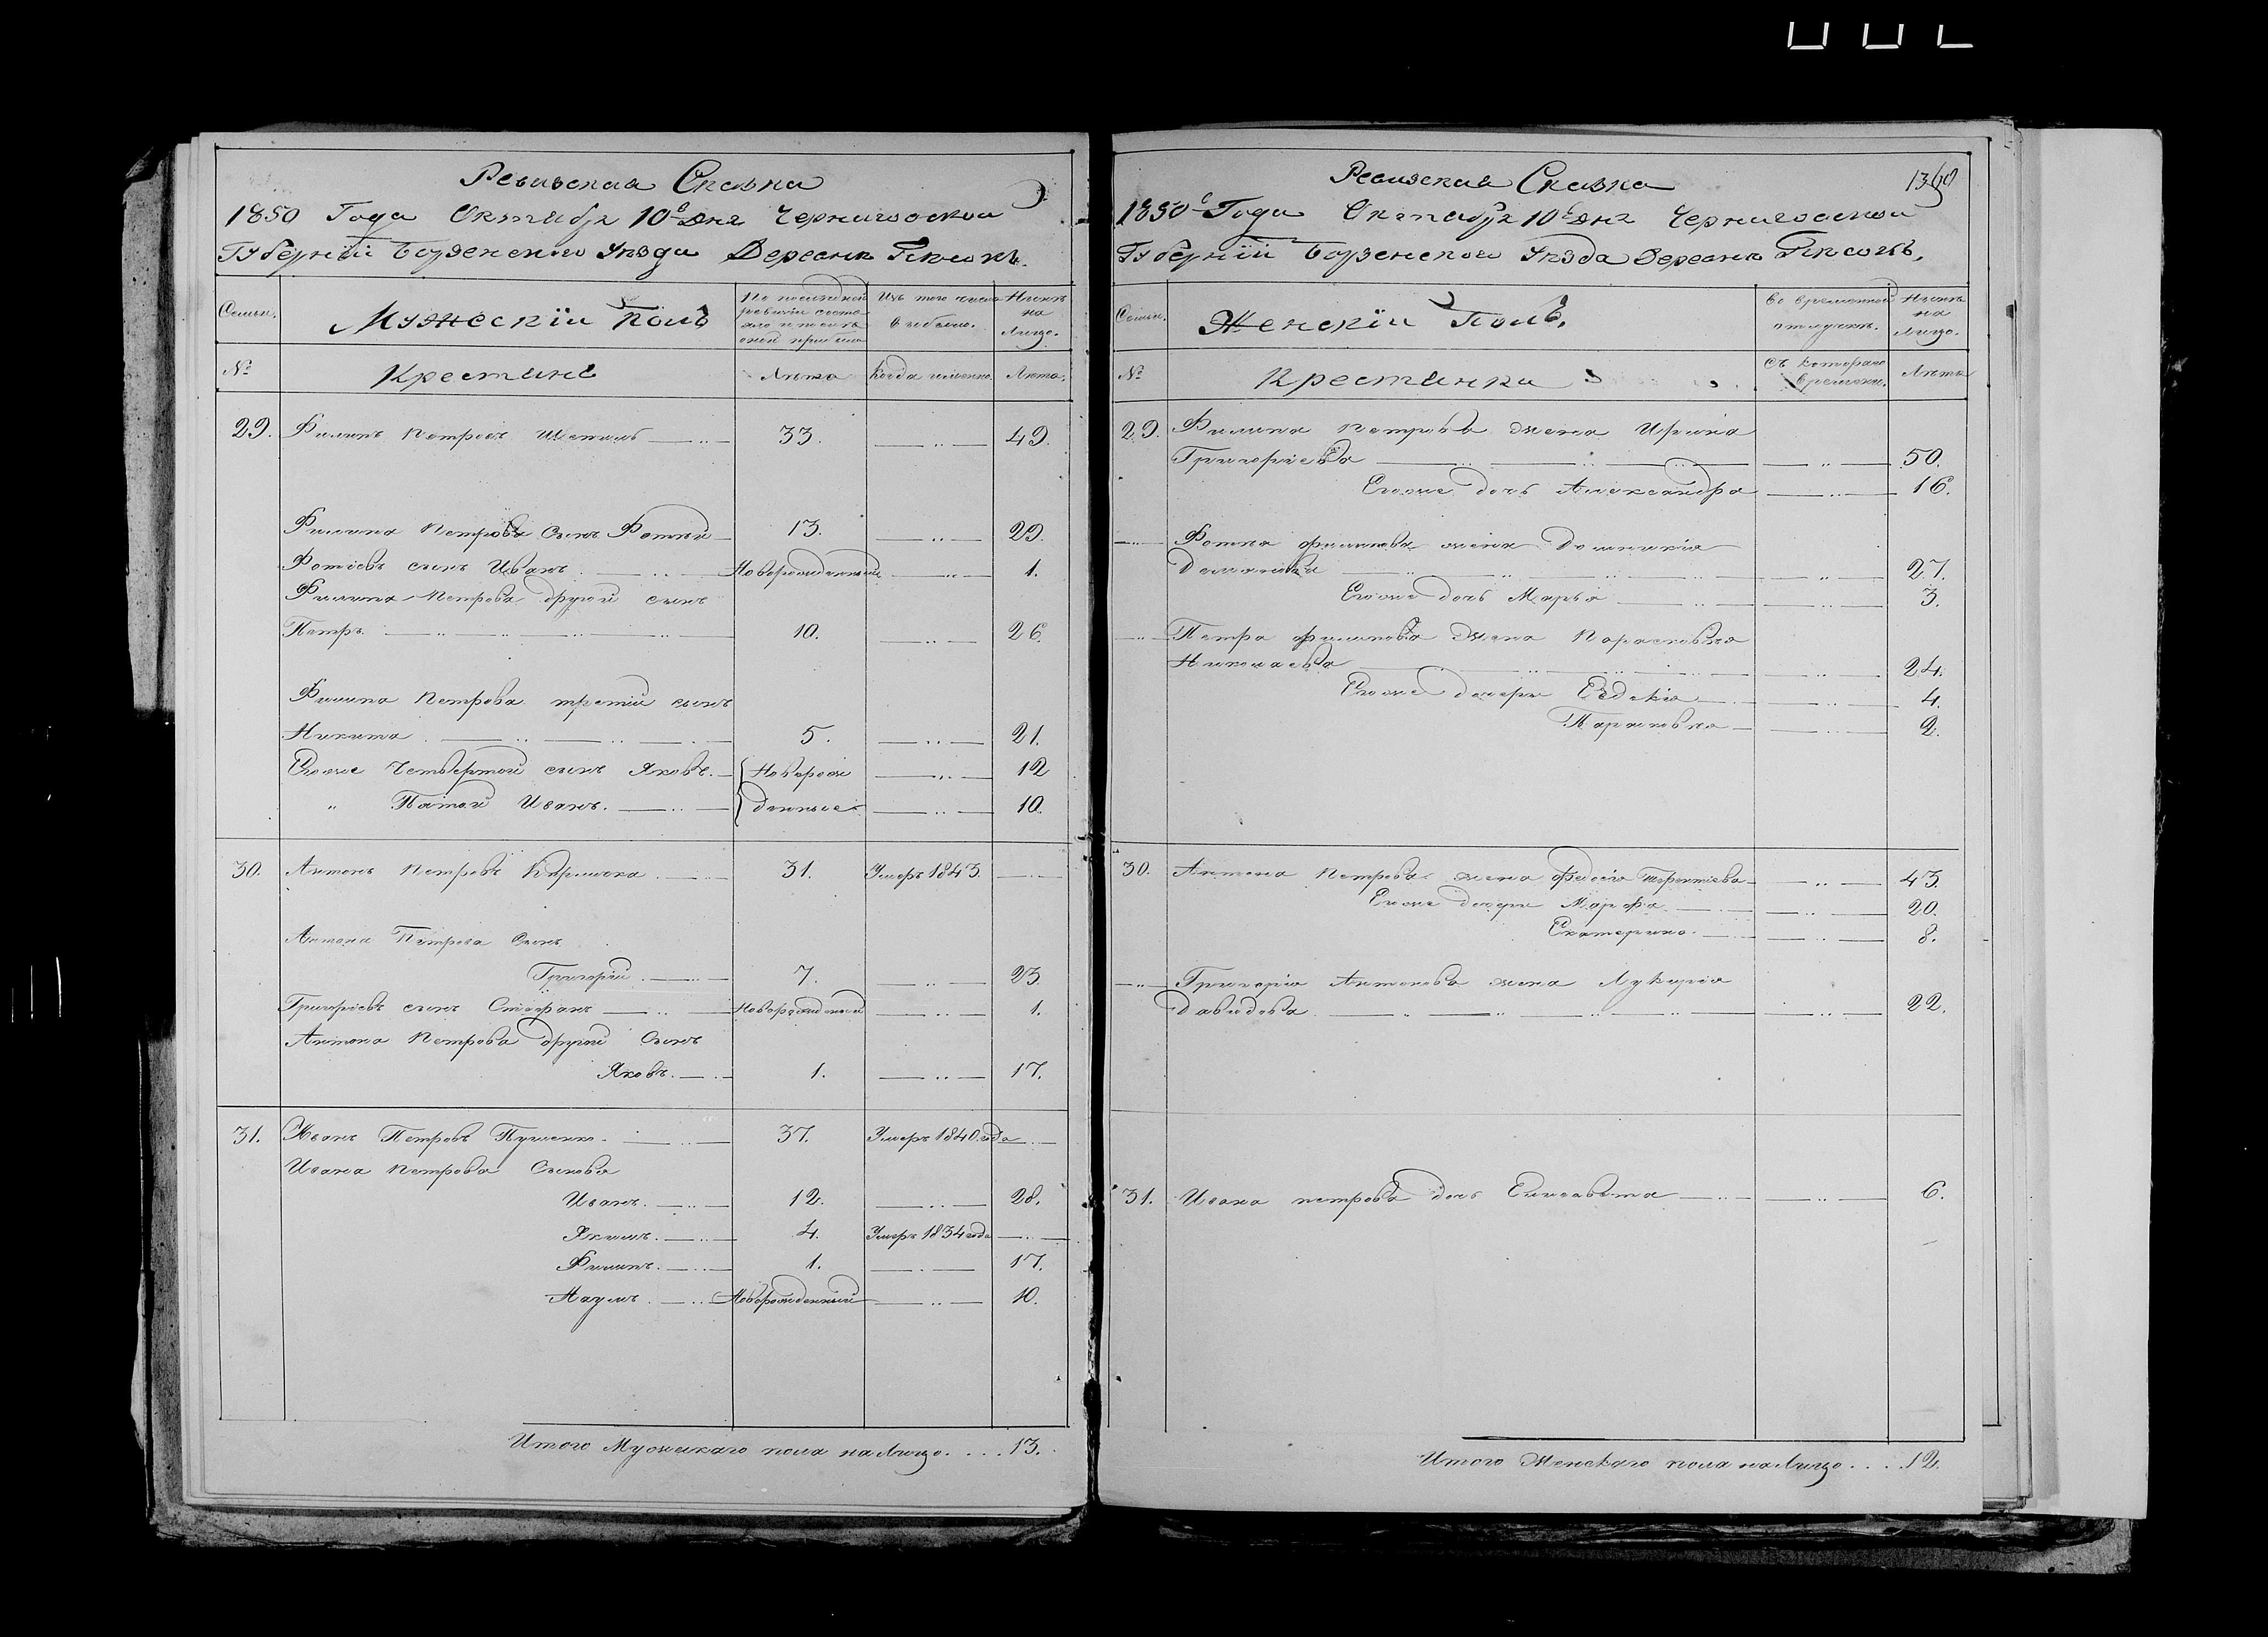 Ревизская Сказка
1850 Года Октября 10го дня Черниговской
Губернiи Борзенского Уезда Деревни Песокъ.
Семьи.
Мужескiй Полъ
По последней ревизiи состояло и после оной прибыло
Изъ того числа выбыло.
Ныне на Лицо.
№
Крестяне
Лета
Когда именно
Лета.
29. Филипъ Петровъ 33. 49.
Филипа Петрова Сынъ Фотiй 13. 29.
Фотiевъ сынъ Иванъ Новорожденный 1.
Филипа Петрова другой сынъ
Петръ. 10. 26.
Филипа Петрова третiй сынъ
Никита 5. 21.
Егоже Четвертой сынъ Яковъ. Новорож 12
" Пятой Иванъ. денные 10.
30. Антонъ Петровъ 31. Умеръ 1843.
Антона Петрова Сынъ
Григорiй 7. 23
Григорiевъ сынъ Стефанъ Новорожденный 1.
Антона Петрова другiй Сынъ
Яковъ. 1. 17.
31. Иванъ Петровъ 37. Умеръ 1840 года
Ивана Петрова Сынова
Иванъ. 12. 28.
Якимъ. 4. Умеръ 1834 года
Филипъ. 1. 17.
Наумъ. Новорожденный 10.
Итого Мужескаго пола на Лицо. . . . 13.
Ревизская Сказка
1850го Года Октября 10го дня Черниговской
Губернiи Борзенского Уезда Деревни Песокъ.
Семьи.
Женскiй Полъ.
Во временной отлучке.
Ныне на Лицо.
№
Крестянки
Съ котораго времени.
Лета
29. Филипа Петрова жена Ирина
Григорiева 50.
Егоже дочь Александра 16.
Фотия Филипова жена Домникiя
27.
Егоже дочь Марья 3.
Петра Филипова жена Парасковiя
Николаева 24.
Егоже дочери Евдокiя 4.
2.
30. Антона Петрова жена 43.
Егоже дочери Марфа 20.
Екатерина. 8.
Григорiя Антонова жена Лукерiя
Давидова 22.
31. Ивана петрова дочь Елисавета 6.
Итого Женскаго пола на Лицо. . . . 12.